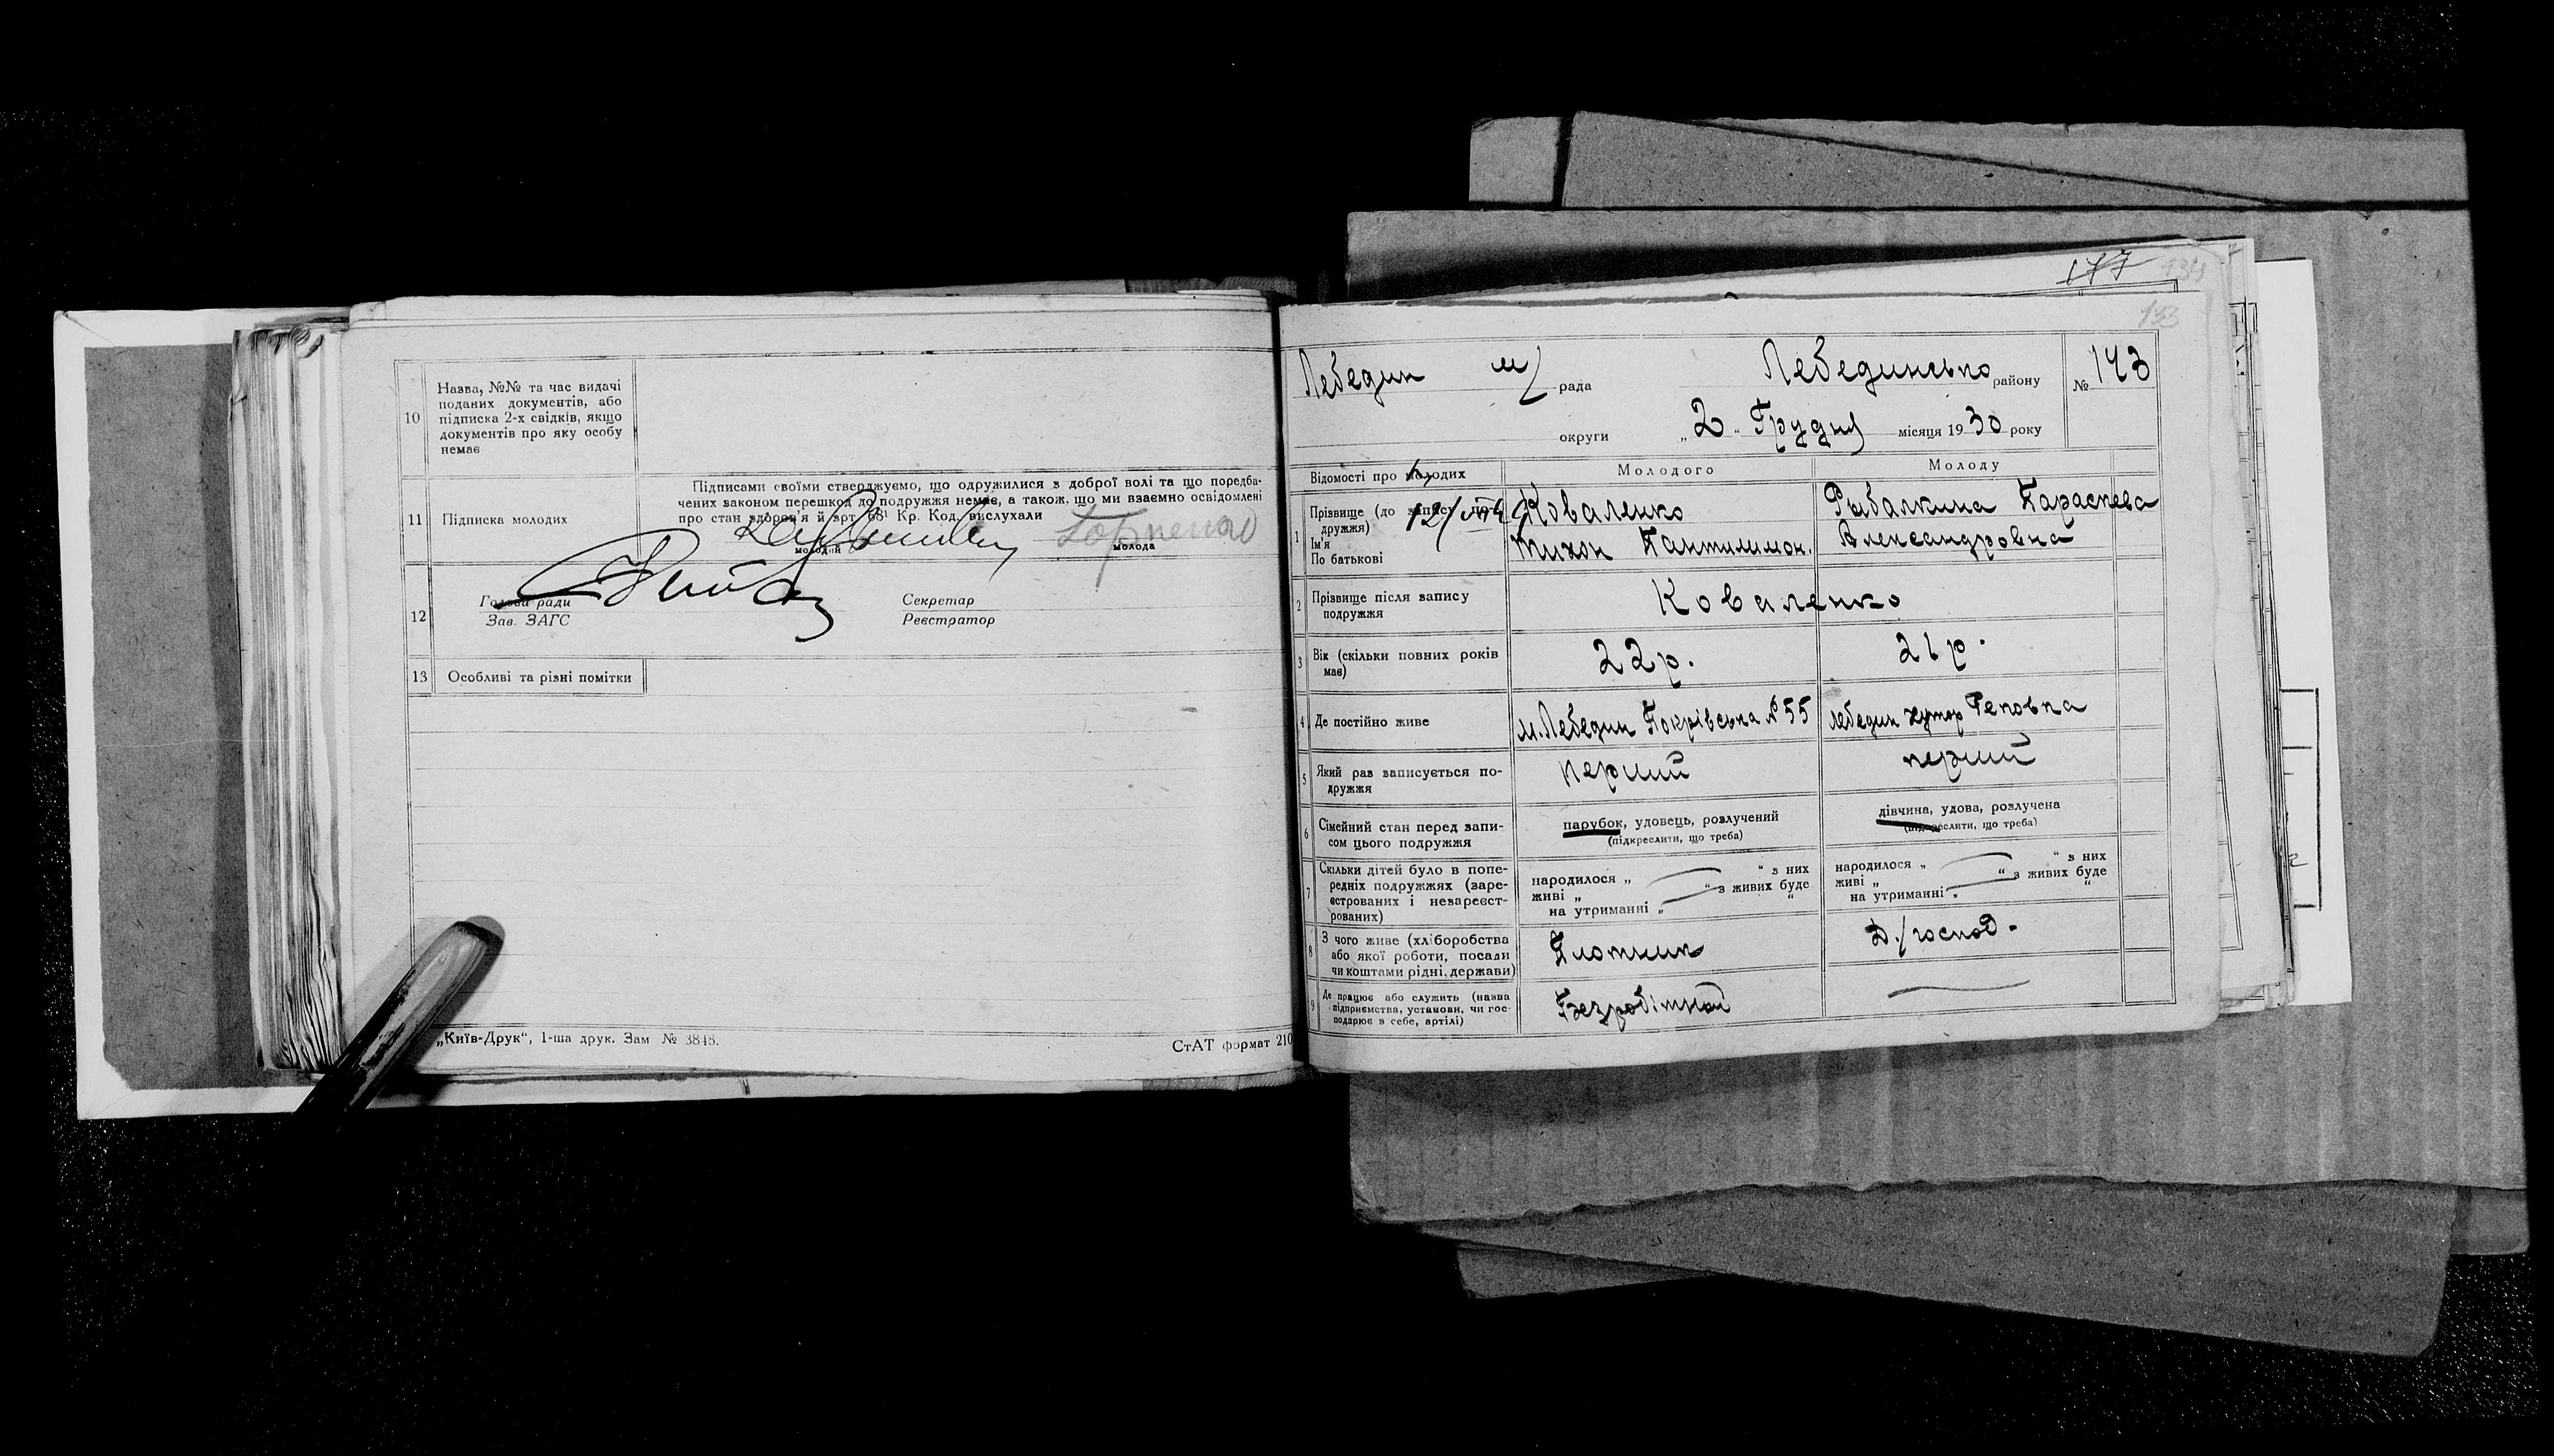 10
Назва, №№ та час видачі
поданих документів, або
підписка 2-х свідків, якщо
документів про яку особу
немає
11
Підписка молодих
Підписами своїми стверджуємо, що одружилися з доброї волі та що передба-
чених законом перешкод до подружжя немає, а також, що ми взаємно освідомлені
про стан здоров'я й арт. 68¹ Кр. Код. вислухали
молодий
молода
12
Голова ради
Зав. ЗАГС
Секретар
Реєстратор
13
Особливі та різні помітки
„Київ-Друк“, 1-ша друк. Зам № 3848.
СтАТ формат 210
177
134
133
Лебедин м/ рада
Лебединсько району
№ 143
округи
„2“ Грудня місяця 1930 року
Відомості про молодих
Молодого
Молоду
1
Прізвище (до запису по-
дружжя)
Ім'я
По батькові
Коваленко
Тихон Пантилимон.
Рыбалкина Параскева
Александровна
2
Прізвище після запису
подружжя
Коваленко
3
Вік (скільки повних років
має)
22 р.
21 р.
4
Де постійно живе
м. Лебедин Покрівська № 55
Лебедин хутор Реповка
5
Який раз записується по-
дружжя
перший
перший
6
Сімейний стан перед запи-
сом цього подружжя
парубок, удовець, розлучений
(підкреслити, що треба)
дівчина, удова, розлучена
(підкреслити, що треба)
7
Скільки дітей було в попе-
редніх подружжях (заре-
єстрованих і незареєст-
рованих)
народилося „ “ з них
живі „ “ з живих буде
на утриманні „ “
народилося „ “ з них
живі „ “ з живих буде
на утриманні „ “
8
З чого живе (хліборобства
або якої роботи, посади
чи коштами рідні, держави)
Плотник
Д./господ.
9
Де працює або служить (назва
підприємства, установи, чи гос-
подарює в себе, артілі)
Безробітний